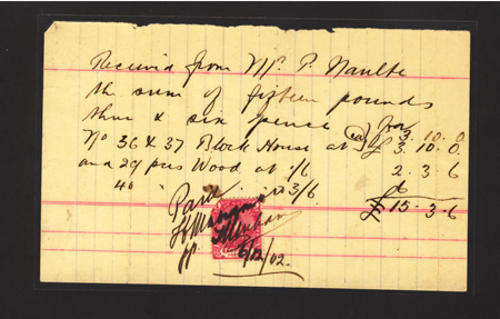 Received from Mr. P. Naulte
the sum of fifteen pounds
three & six pence for
No 36 & 37 Block House at (ea) £ 3.10.0
3.10.0
and 29 pcs Wood at 1/6 2.3.6
40 " " 3/6 6
£15.3.6
Paid
6/12/02